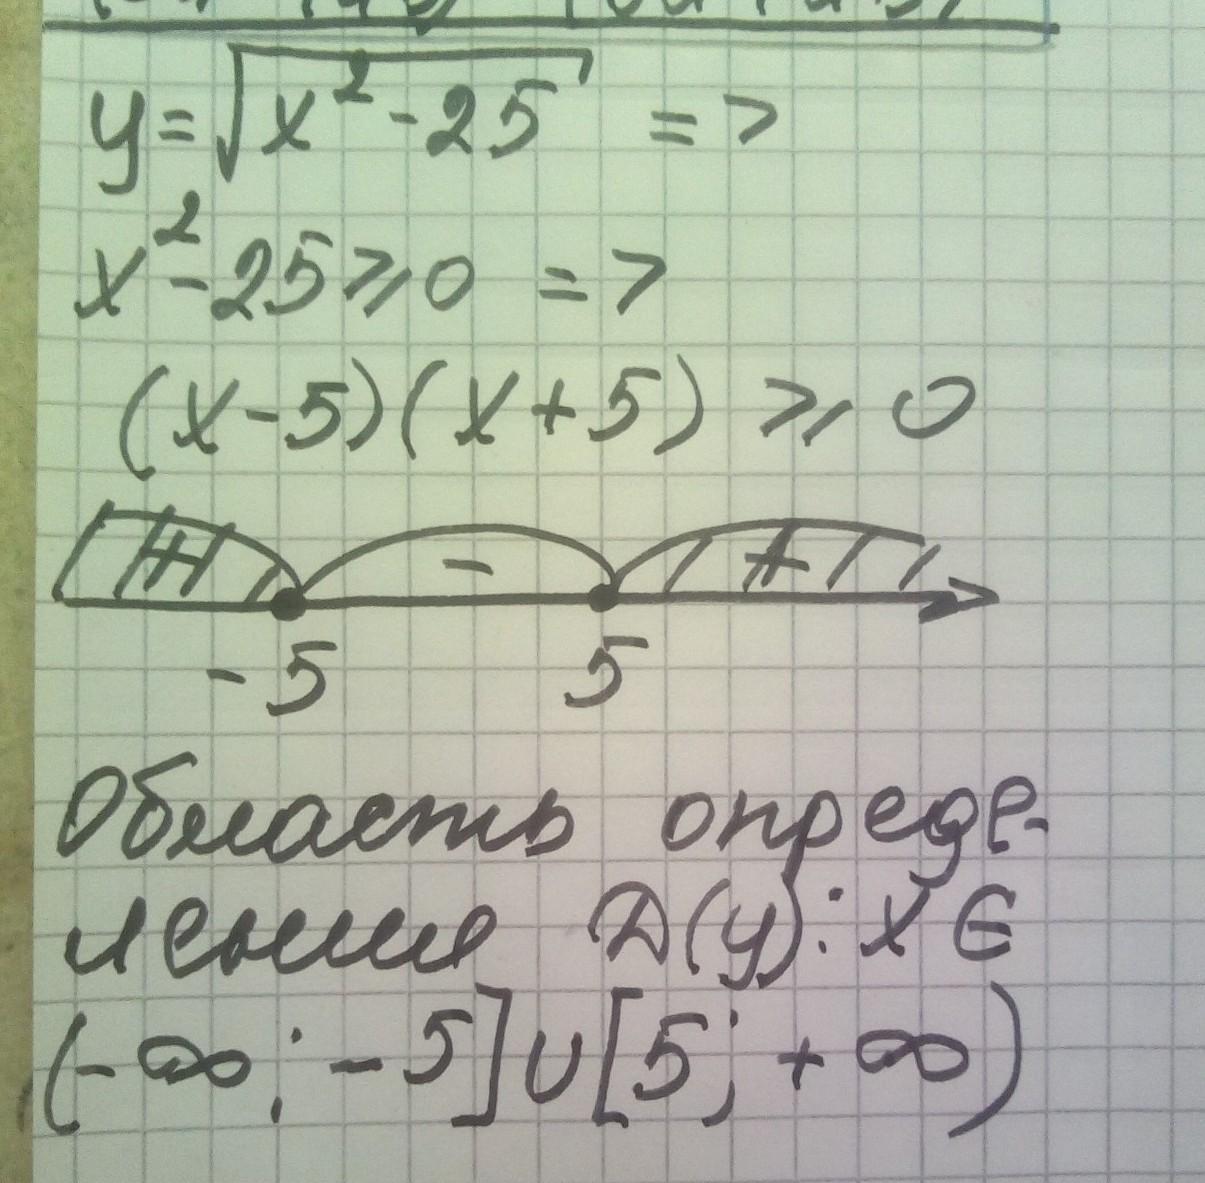 y = √x² - 25 =>
x² - 25 ⩾ 0 =>
(x - 5)(x + 5) ⩾ 0
+ - +
-5 5
Область опреде-
ления D(y): x ∈
(-∞; -5] ∪ [5; +∞)